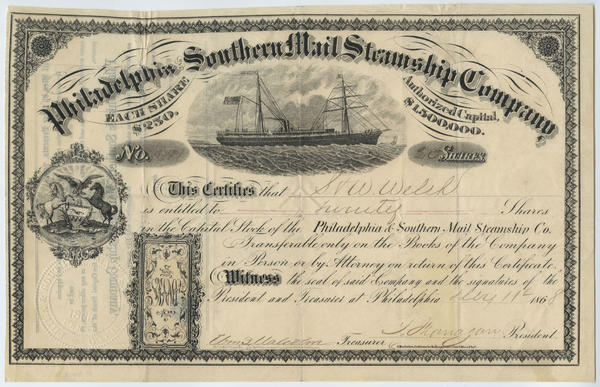 Philadelphia and Southern Mail Steamship Company,
EACH SHARE $250.
Authorized Capital, $1,500,000.
No.
Shares,
This Certifies that S & W Welsh
is entitled to Twenty Shares
in the Capital Stock of the Philadelphia & Southern Mail Steamship Co.
Transferable only on the Books of the Company
in Person or by Attorney on return of this Certificate.
Witness the seal of said Company and the signatures of the
President and Treasurer at Philadelphia May 11th 1868
Treasurer
President